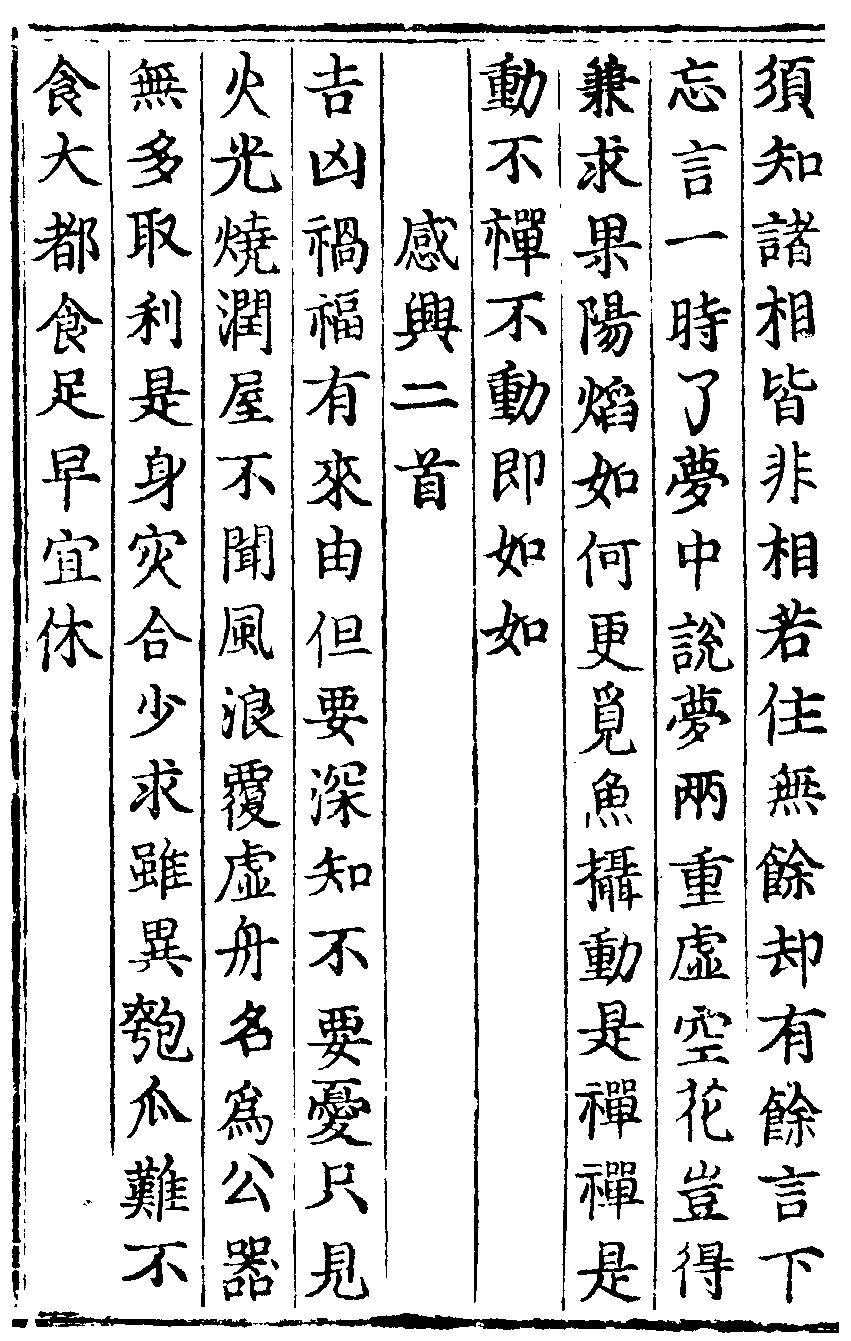 須知諸相皆非相若住無餘却有餘言下
忘言一時了夢中說夢兩重虛空花豈得
兼求果陽燄如何更覓魚攝動是禪禪是
動不禪不動即如如
感興二首
吉凶禍福有來由但要深知不要憂只見
火光燒潤屋不聞風浪覆虛舟名爲公器
無多取利是身灾合少求雖異匏瓜難不
食大都食足早宜休